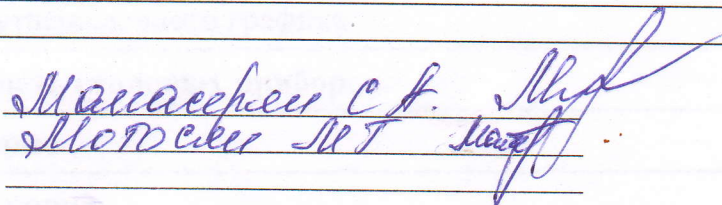 Манасерян С А.
Мотосян МГ